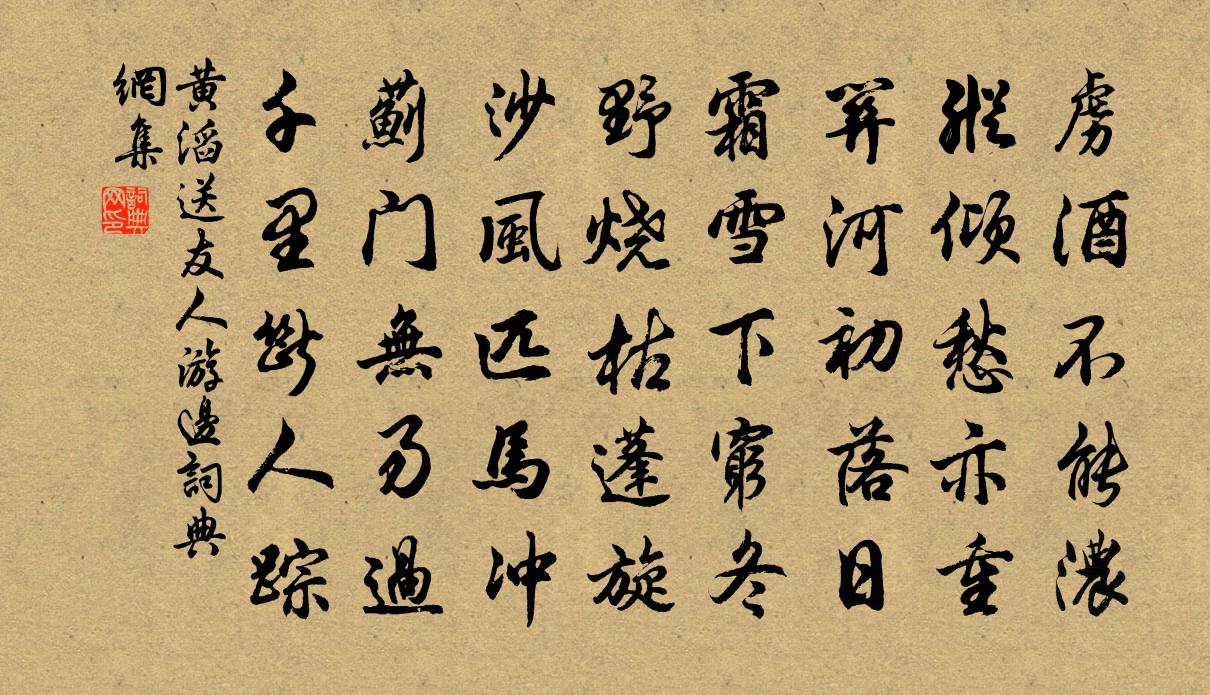 虜酒不能濃
縱傾愁亦重
關河初落日
霜雪下窮冬
野燒枯蓬旋
沙風匹馬冲
薊門無易過
千里斷人踪
黃滔送友人游邊詞典
網集
詞典
网印